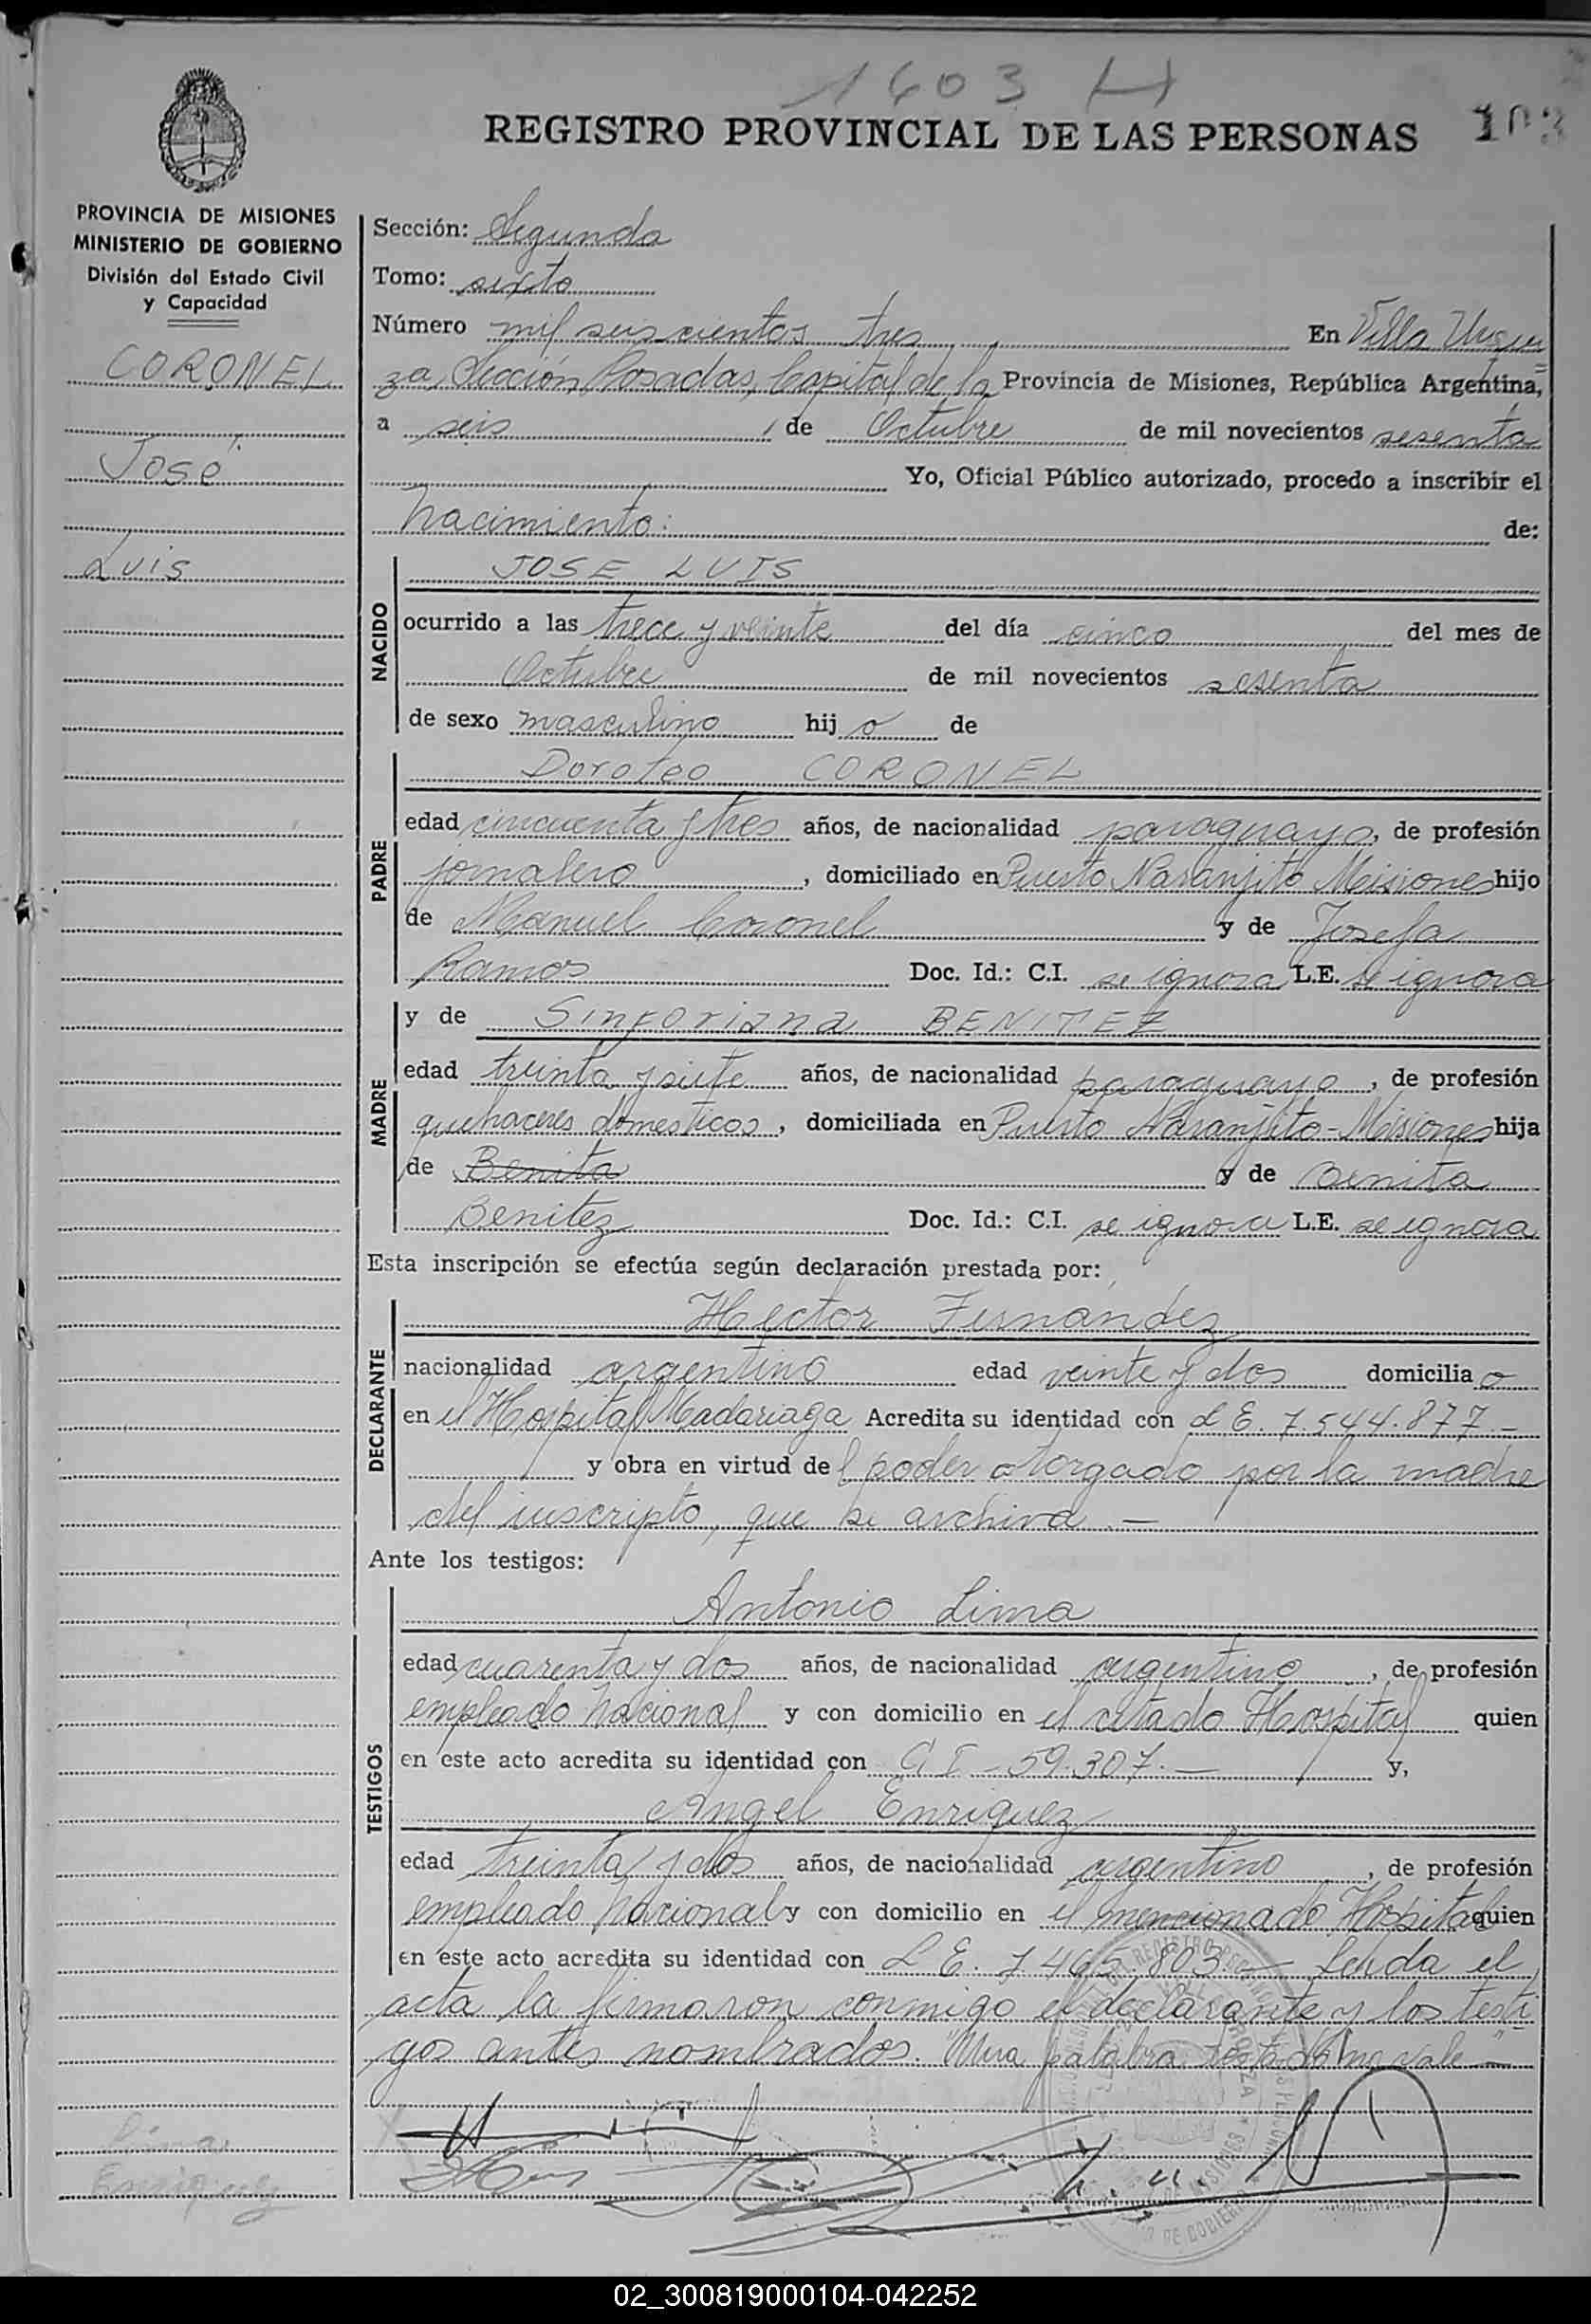 1603 H
REGISTRO PROVINCIAL DE LAS PERSONAS 103
PROVINCIA DE MISIONES
MINISTERIO DE GOBIERNO
División del Estado Civil
y Capacidad
CORONEL
José
Luis
Sección: Segunda
Tomo: sexto
Número mil seiscientos tres En Villa Urqui
za, Sección Posadas, Capital de la Provincia de Misiones, República Argentina,
a seis de Octubre de mil novecientos sesenta
Yo, Oficial Público autorizado, procedo a inscribir el
nacimiento: de:
NACIDO
JOSE LUIS
ocurrido a las trece y veinte del día cinco del mes de
Octubre de mil novecientos sesenta
de sexo masculino hijo de
PADRE
Doroteo CORONEL
edad cincuenta y tres años, de nacionalidad paraguayo, de profesión
jornalero, domiciliado en Puerto Naranjito Misiones hijo
de Manuel Coronel y de Josefa
Ramos Doc. Id.: C.I. se ignora L.E. se ignora
MADRE
y de Sinforiana BENITEZ
edad treinta y siete años, de nacionalidad paraguaya, de profesión
quehaceres domesticos, domiciliada en Puerto Naranjito - Misiones hija
de Benita y de Benita
Benitez Doc. Id.: C.I. se ignora L.E. se ignora
Esta inscripción se efectúa según declaración prestada por:
DECLARANTE
Hector Fernández
nacionalidad argentino edad veinte y dos domicilia o
en el Hospital Madariaga Acredita su identidad con L E. 7.544.877.-
y obra en virtud del poder otorgado por la madre
del inscripto, que se archiva.-
Ante los testigos:
TESTIGOS
Antonio Lima
edad cuarenta y dos años, de nacionalidad argentino, de profesión
empleado nacional y con domicilio en el citado Hospital quien
en este acto acredita su identidad con C I - 59.307.- y,
Angel Enriquez
edad treinta y dos años, de nacionalidad argentino, de profesión
empleado nacional y con domicilio en el mencionado Hospital quien
en este acto acredita su identidad con L E. 7.465.803.- Leída el
acta la firmaron conmigo el declarante y los testi
gos antes nombrados. "Una palabra testada no vale"-
Lima
Enriquez
02_300819000104-042252